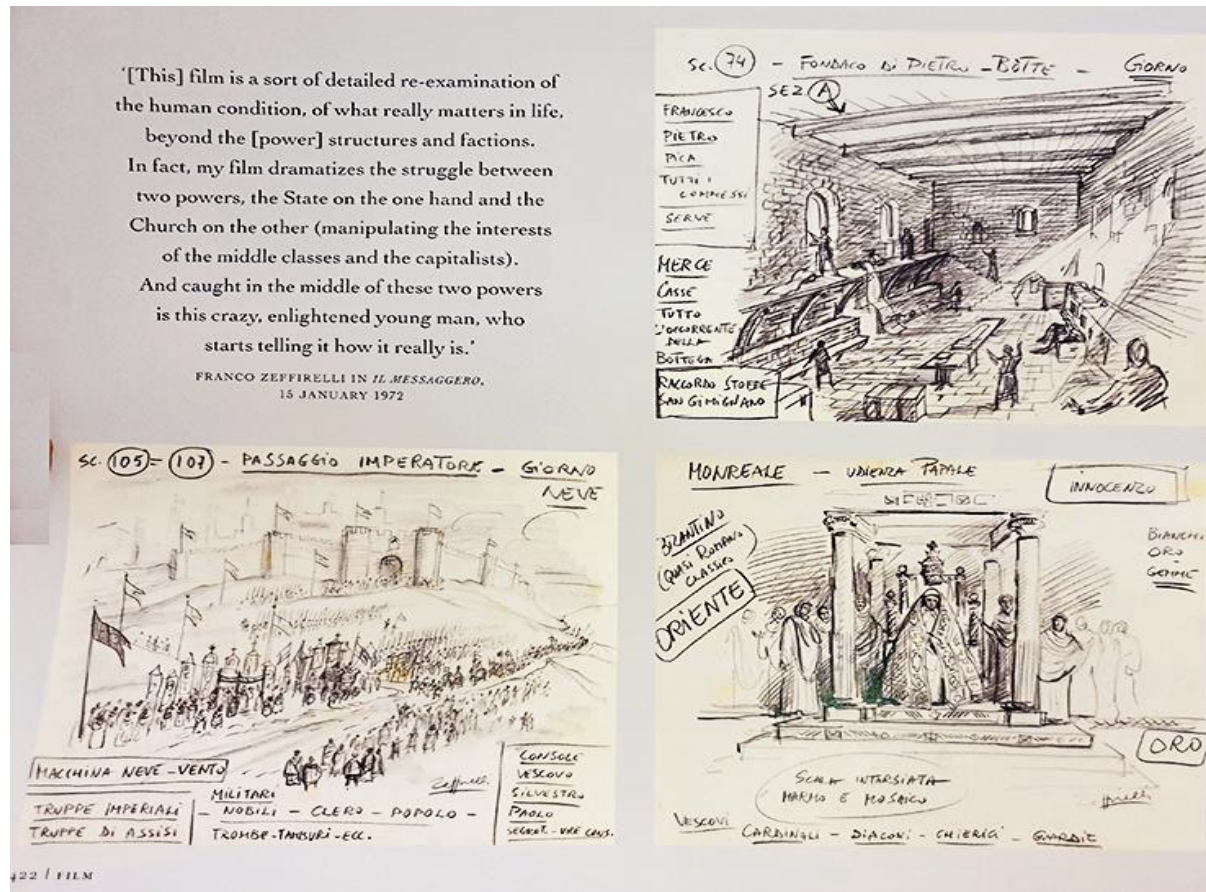 '[This] film is a sort of detailed re-examination of
the human condition, of what really matters in life,
beyond the [power] structures and factions.
In fact, my film dramatizes the struggle between
two powers, the State on the one hand and the
Church on the other (manipulating the interests
of the middle classes and the capitalists).
And caught in the middle of these two powers
is this crazy, enlightened young man, who
starts telling it how it really is.'
FRANCO ZEFFIRELLI IN IL MESSAGGERO,
15 JANUARY 1972
SC. 74 - FONDACO DI PIETRO - BOTTE - GIORNO
SEZ A
FRANCESCO
PIETRO
PICA
TUTTI I
COMMESSI
SERVE
MERCE
CASSE
TUTTO
L'OCCORRENTE
DELLA
BOTTEGA
RACCORDO STOFFE
SAN GIMIGNANO
SC. 105=107 - PASSAGGIO IMPERATORE - GIORNO
NEVE
MACCHINA NEVE - VENTO
TRUPPE IMPERIALI
TRUPPE DI ASSISI
MILITARI
- NOBILI - CLERO - POPOLO -
TROMBE - TAMBURI - ECC.
Zeffirelli
CONSOLE
VESCOVO
SILVESTRO
PAOLO
MONREALE - UDIENZA PAPALE
INNOCENZO
BIZANTINO
(QUASI ROMANO
CLASSICO)
ORIENTE
BIANCHI
ORO
GEMME
ORO
SCALA INTARSIATA
MARMO E MOSAICO
Zeffirelli
VESCOVI CARDINALI - DIACONI - CHIERICI - GUARDIE
422 / FILM